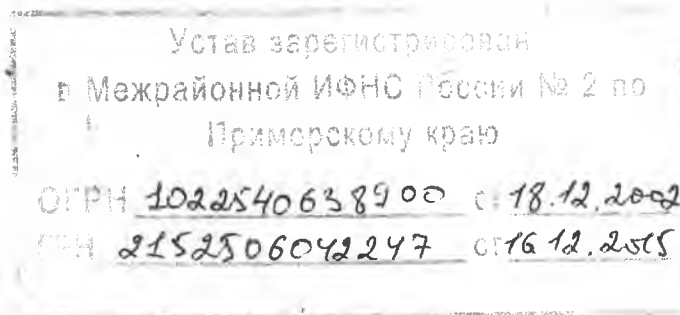 Устав зарегистрирован
в Межрайонной ИФНС России № 2 по
Приморскому краю
ОГРН 1022540638900 от 18.12.2002
ГРН 2152506042247 от 16.12.2015